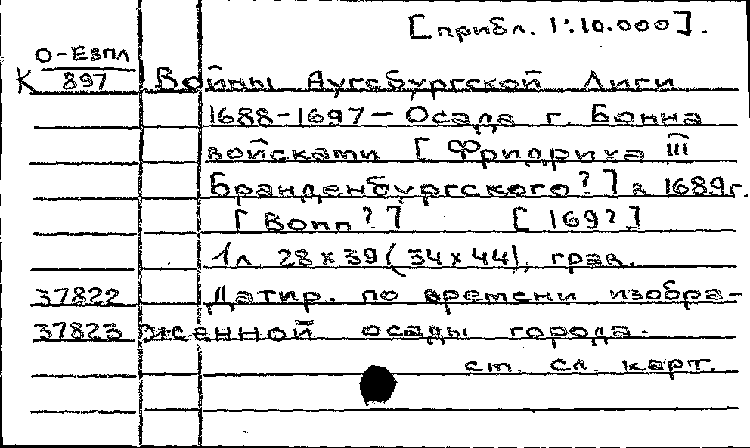 [прибл. 1:10.000].
О-ЕЗПЛ
К 897 Войны Аугсбургской Лиги
1688-1697 - Осада г. Бонна
войсками [Фридриха III
Бранденбургского?] в 1689г.
[Bonn?] [169?]
1л. 28х39(34х44), грав.
37822 Датир. по времени изобра-
37823 женной осады города.
см. сл. карт.